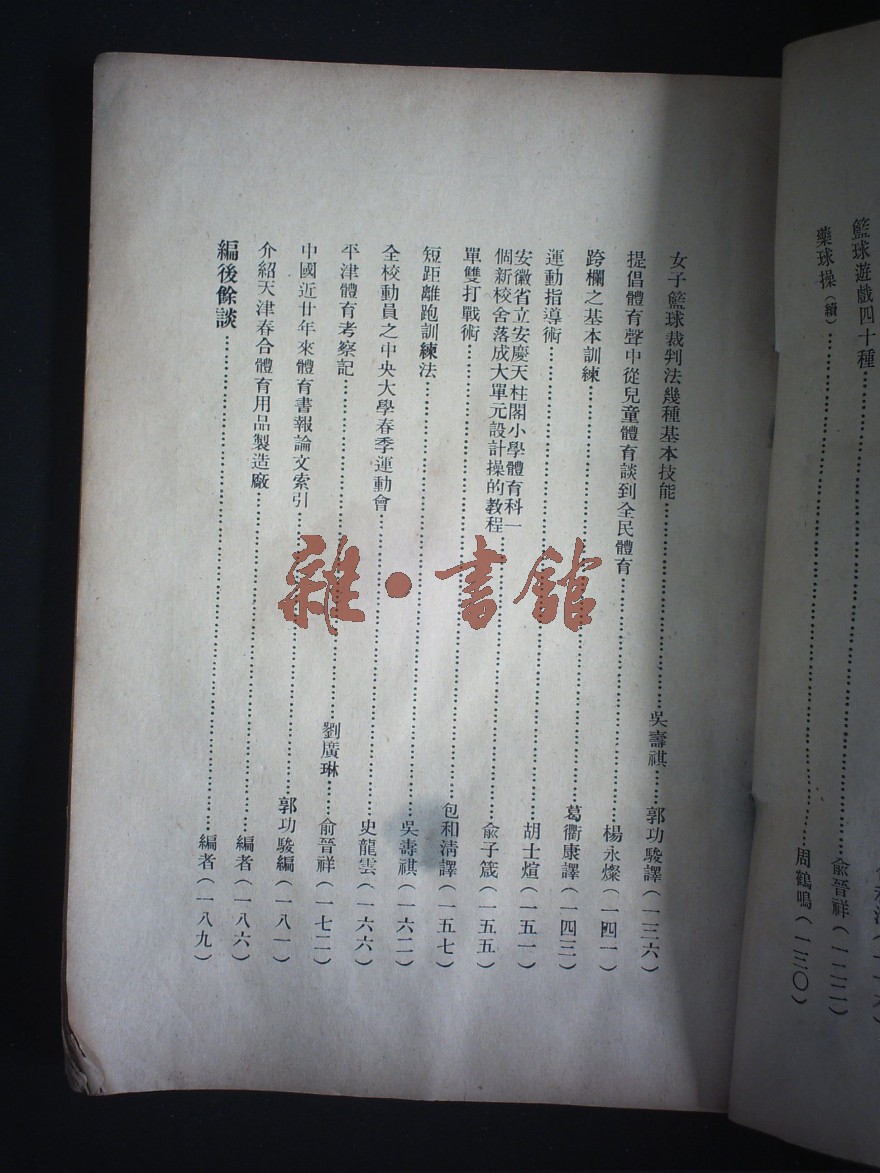 籃球遊戲四十種……俞晉祥（一二二）
藥球操（續）……周鶴鳴（一三〇）
女子籃球裁判法幾種基本技能……吳壽祺……郭功駿譯（一三六）
提倡體育聲中從兒童體育談到全民體育……楊永燦（一四一）
跨欄之基本訓練……葛衢康譯（一四三）
運動指導術……胡士煊（一五一）
安徽省立安慶天柱閣小學體育科一
個新校舍落成大單元設計操的教程……俞子箴（一五五）
單雙打戰術……包和清譯（一五七）
短距離跑訓練法……吳壽祺（一六二）
全校動員之中央大學春季運動會……史龍雲（一六六）
平津體育考察記……劉廣琳……俞晉祥（一七二）
中國近廿年來體育書報論文索引……郭功駿編（一八一）
介紹天津春合體育用品製造廠……編者（一八六）
編後餘談……編者（一八九）
雜·書館